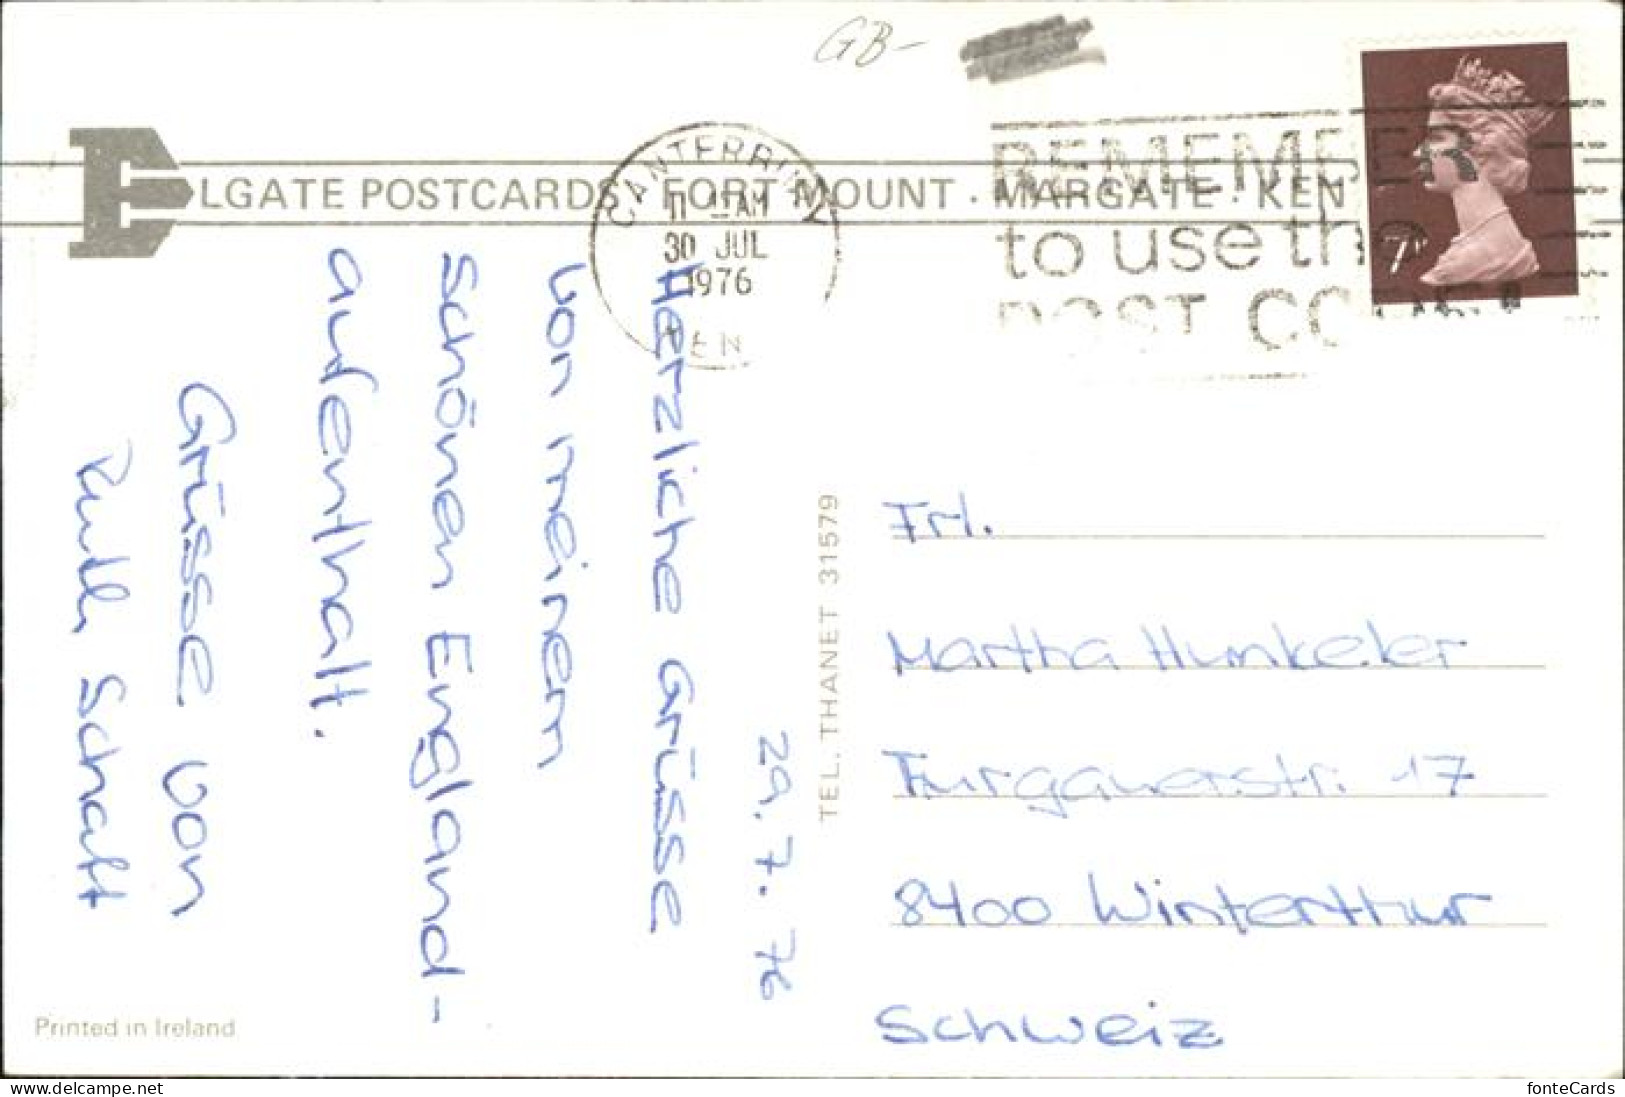 GB-
ELGATE POSTCARDS · FORT MOUNT · MARGATE · KEN
CANTERBURY
11 AM
30 JUL
1976
KEN
REMEMBER
to use the
POST CO
7P
29.7.76
Herzliche Grüsse
von meinem
schönen England-
aufenthalt.
Grüsse von
Ruth Schaft
TEL. THANET 31579
Frl.
Martha Hunkeler
Turgauerstr. 17
8400 Winterthur
Schweiz
Printed in Ireland
delcampe.net
fonteCards